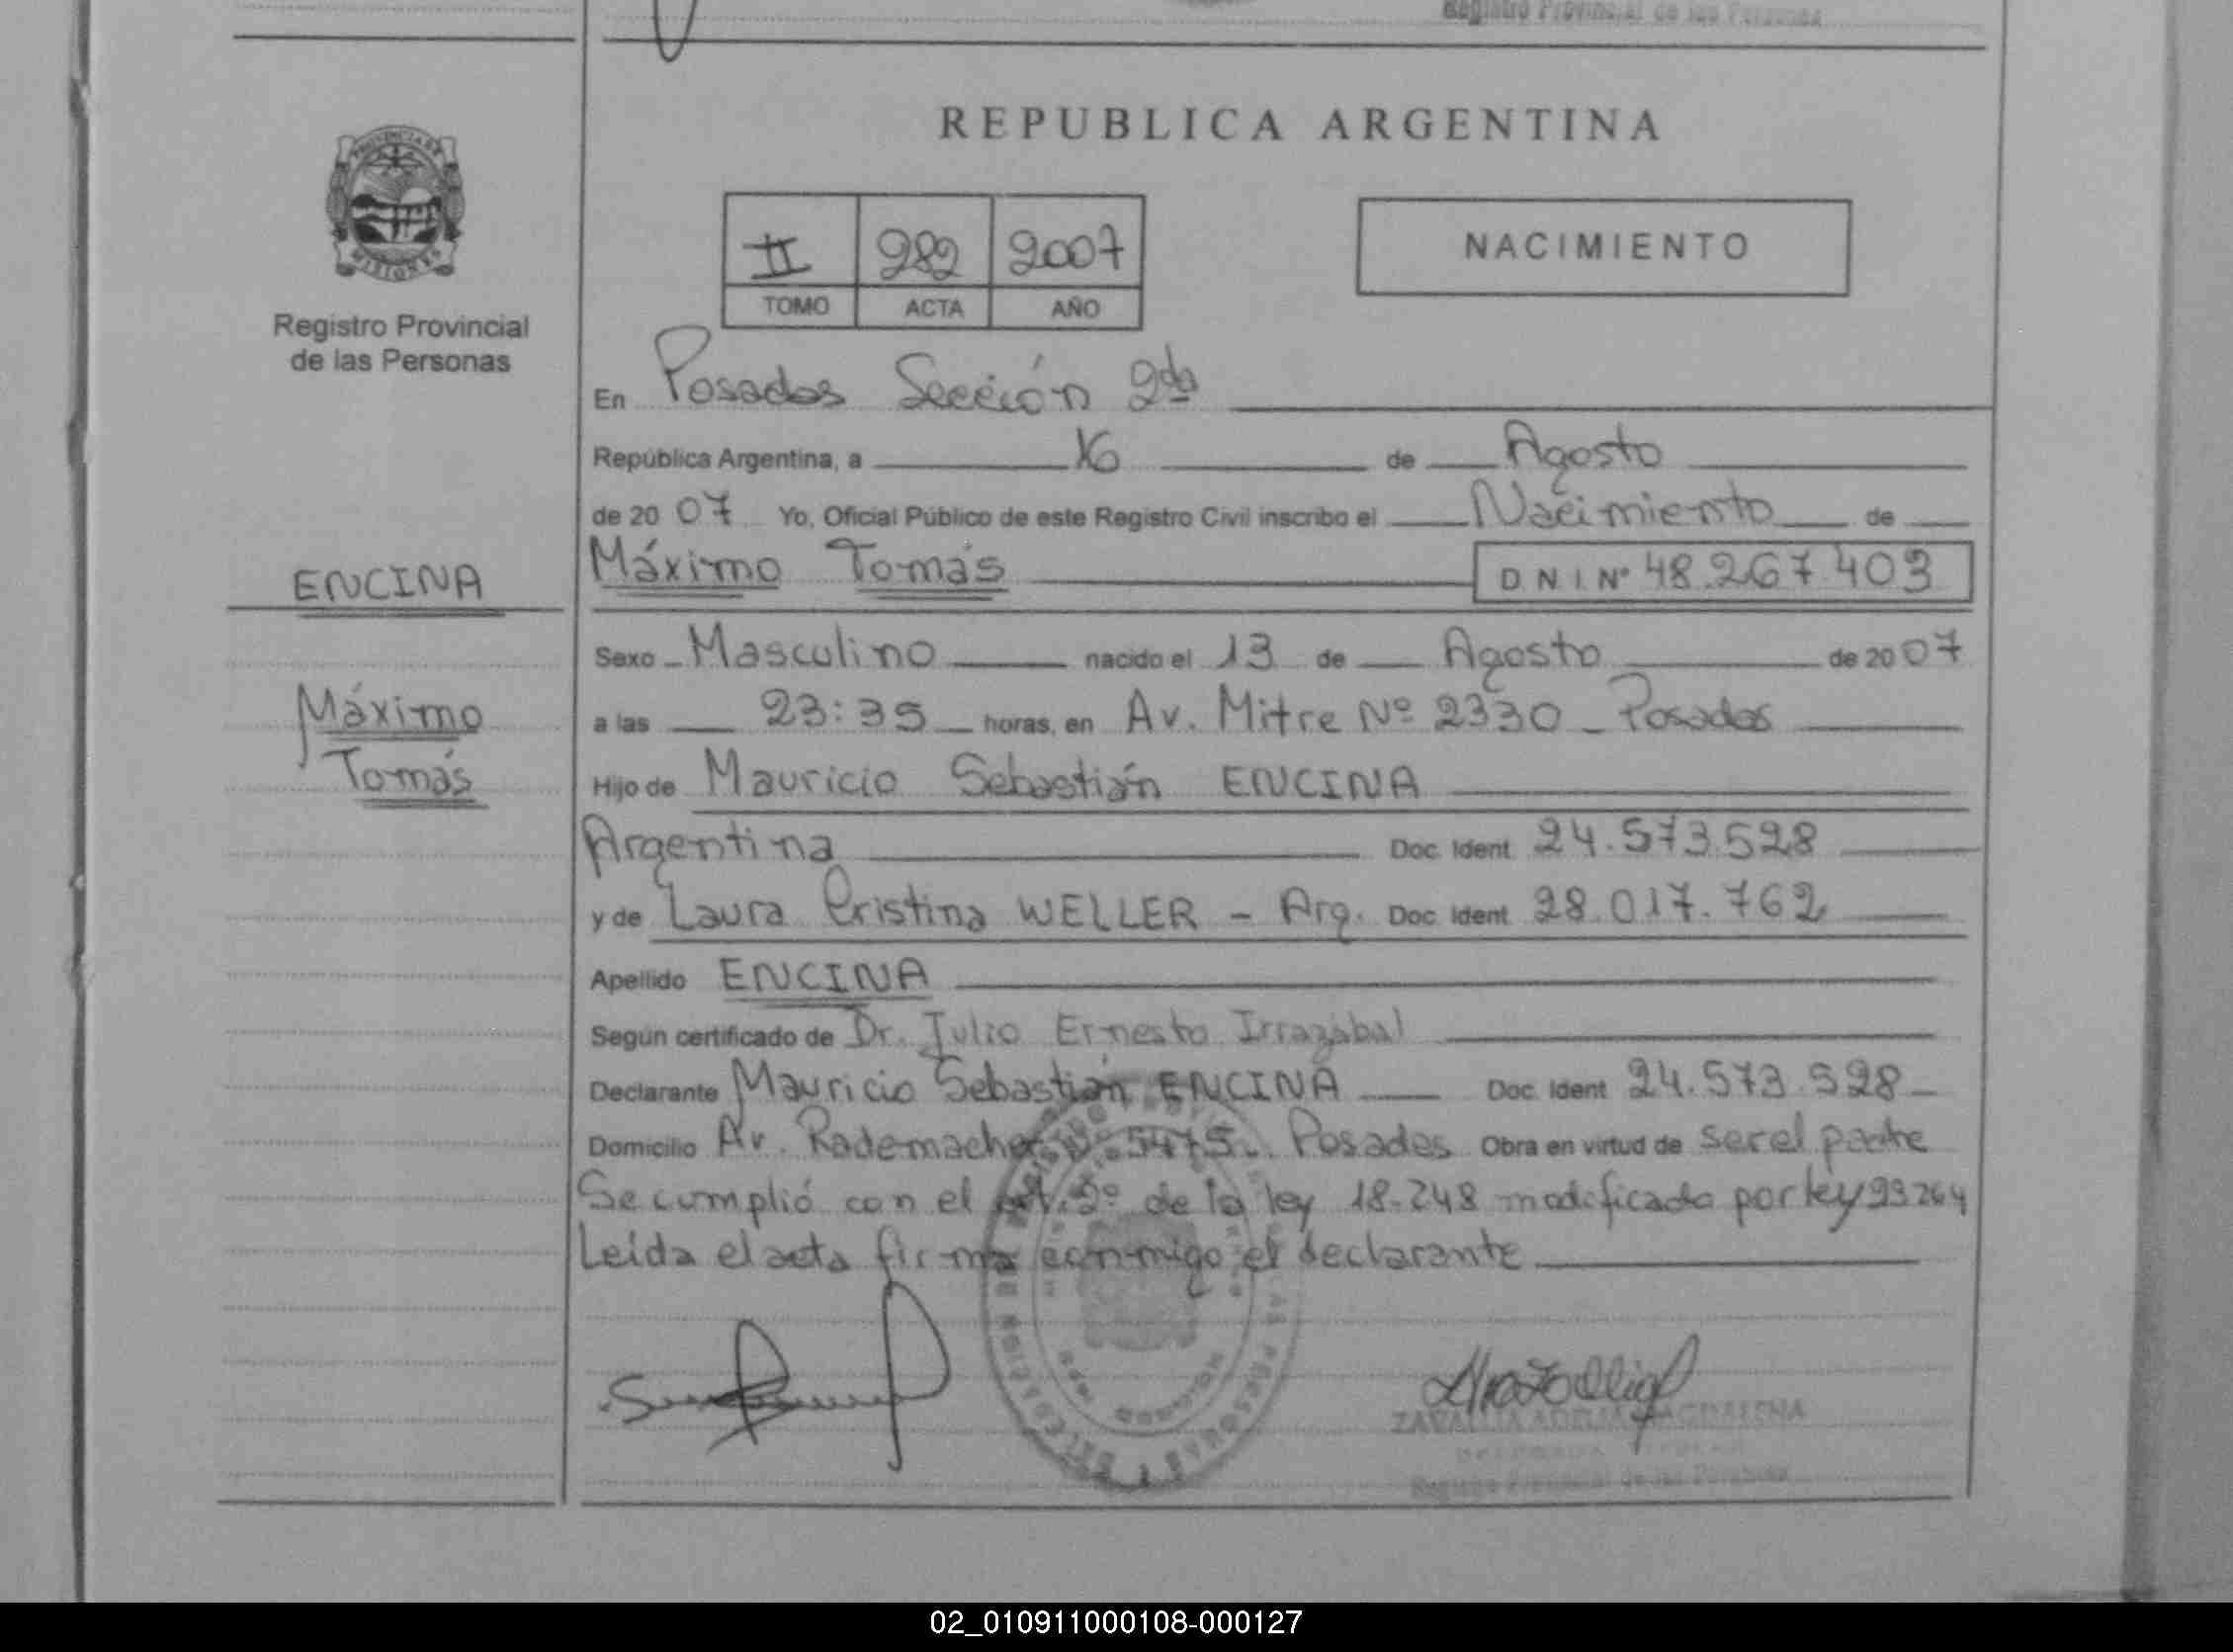 Registro Provincial de las Personas
REPUBLICA ARGENTINA
PROVINCIA DE
MISIONES
Registro Provincial
de las Personas
II 282 2007
TOMO ACTA AÑO
NACIMIENTO
En Posadas Sección 2da
República Argentina, a 16 de Agosto
de 20 07 Yo, Oficial Público de este Registro Civil inscribo el Nacimiento de
ENCINA
Máximo Tomás D.N.I. Nº 48.267.403
Sexo Masculino nacido el 13 de Agosto de 20 07
Máximo
Tomás
a las 23:35 horas, en Av. Mitre Nº 2330 - Posadas
Hijo de Mauricio Sebastián ENCINA
Argentina Doc. Ident. 24.573.528
y de Laura Cristina WELLER - Arg. Doc. Ident. 28.017.762
Apellido ENCINA
Según certificado de Dr. Julio Ernesto Irrazábal
Declarante Mauricio Sebastián ENCINA Doc. Ident. 24.573.528
Domicilio Av. Rademacher Nº 5475. Posadas Obra en virtud de ser el padre
Se cumplió con el art. 2º de la ley 18.248 modificada por ley 23264
Leída el acta firma conmigo el declarante
ZARATE ADELIA MAGDALENA
Registro Provincial de las Personas
02_010911000108-000127